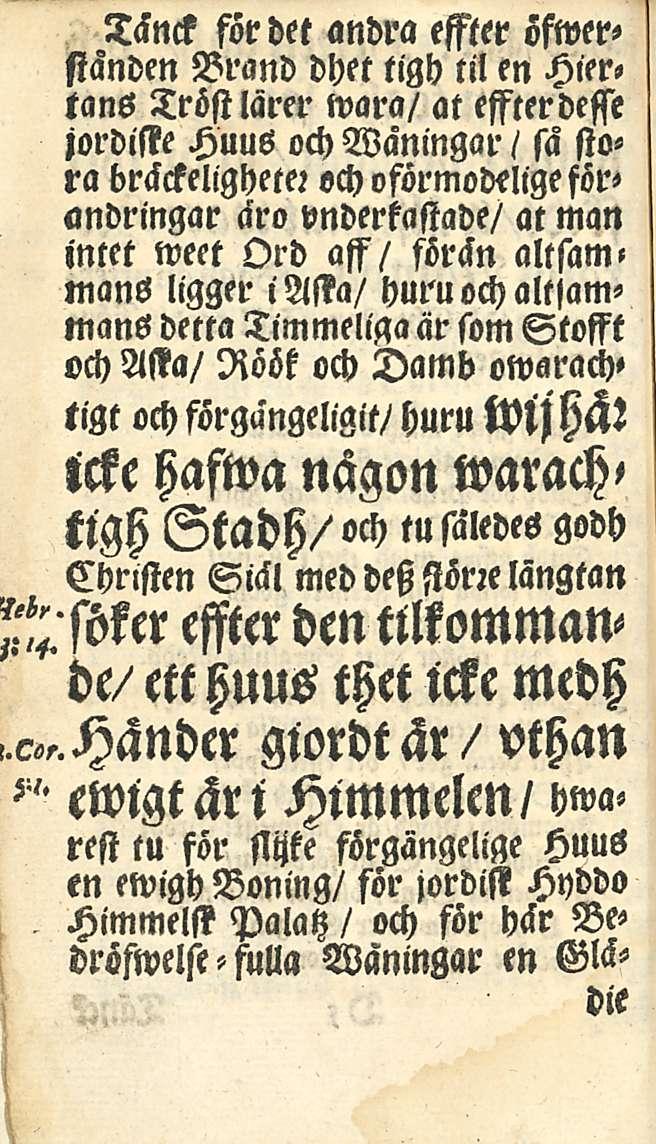 Tänck för det andra effter öfwer-
ständen Brand dhet tigh til en Hier-
tans Tröst lärer wara/ at effter desse
jordiske Huus och Wåningar / så sto-
ra bräckeligheter och oförmodelige för-
andringar äro vnderkastade/ at man
intet weet Ord aff / förän altsam-
mans ligger i Aska/ huru och altsam-
mans detta Timmeliga är som Stofft
och Aska/ Röök och Damb owarach-
tigt och förgängeligit/ huru wij här
icke hafwa någon warach-
tigh Stadh/ och tu således godh
Christen Siäl med deß större längtan
Hebr.
söker effter den tilkomman-
3: 14.
de/ ett huus thet icke medh
2.Cor. Händer giordt är / vthan
5:1. ewigt är i Himmelen / hwa-
rest tu för slijke förgängelige Huus
en ewigh Boning/ för jordisk Hyddo
Himmelsk Palatz / och för här Be-
dröfwelse-fulla Wåningar en Glä-
die